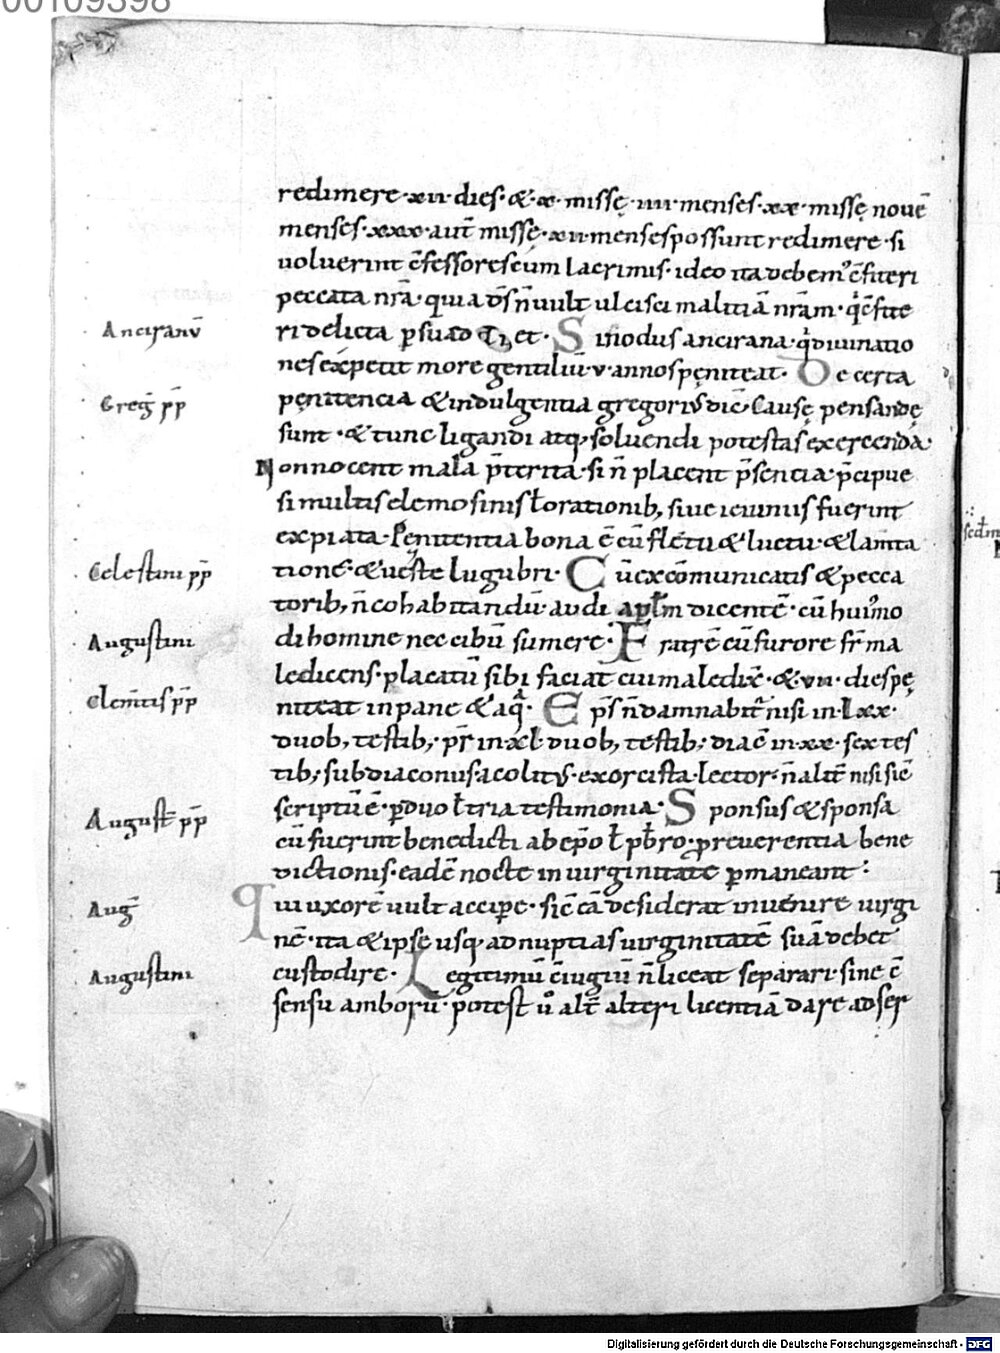 00109398
redimere·xii·dies·&·x·missę·iiii·menses·xx·missę nouē
menses·xxx·aut̄ missę·xii·menses possunt redimere·si
uoluerint c̄fessores eum lacrimis·ideo ita debem᾽ c̄fiteri
peccata nr̄a·quia d̄s n̄ uult ulcisci malitiā nr̄am·q̇ c̄fite
Anciranū
ri delicta p̱suad & · Sinodus ancirana·q̇ diuinatio
nes expetit more gentiliū·v·annos pęniteat· De certa
Greḡ pp̄
pęnitencia & indulgentia gregori᾽ dic̄ Causę pensandę
sunt·& tunc ligandi atq; soluendi potestas exercenda·
Non nocent mala p̄terita·si n̄ placent p̄sencia·p̄cipue
si multis elemosinis ƚ orationib; siue ieiuniis fuerint
expiata·Penitentia bona ē cū fletu & luctu·& lam̄ta
Celestini pp̄
tione·& ueste lugubri· Cū excōmunicatis & pecca
torib; n̄ cohabitandū·audi apƚm dicentē·cū hui᾽mo
Augustini
di homine nec cibū sumere· Fratrē cū furore fr̄ ma
ledicens·placatū sibi faciat cui maledix̄·&·vii·dies pę
Clem̄tis pp̄
niteat in pane & aq̇· Ep̄s n̄ damnabit᾽ nisi in·Lxx·
duob; testib; pr̄ in·xl·duob; testib; diac̄ in·xx·sex tes
tib; subdiaconus acolit᾽·exorcista·lector·n̄ alit̄ nisi sic̄
Augusī pp̄
scriptū ē·p̱ duo ƚ tria testimonia· Sponsus & sponsa
cū fuerint benedicti ab ep̄o ƚ pb̄ro·p reuerentia bene
dictionis·eadē nocte in uirginitate p̱maneant:
Auḡ
Qui uxorē uult accipe·sic̄ eā desiderat inuenire uirgi
nē·ita & ipse usq; ad nuptias uirginitatē suā debet
Augustini
custodire· Legitimū c̄iugiū n̄ liceat separari·sine c̄
sensu amborū·potest ů alt̄ alteri licentiā dare ad ser
Digitalisierung gefördert durch die Deutsche Forschungsgemeinschaft - DFG